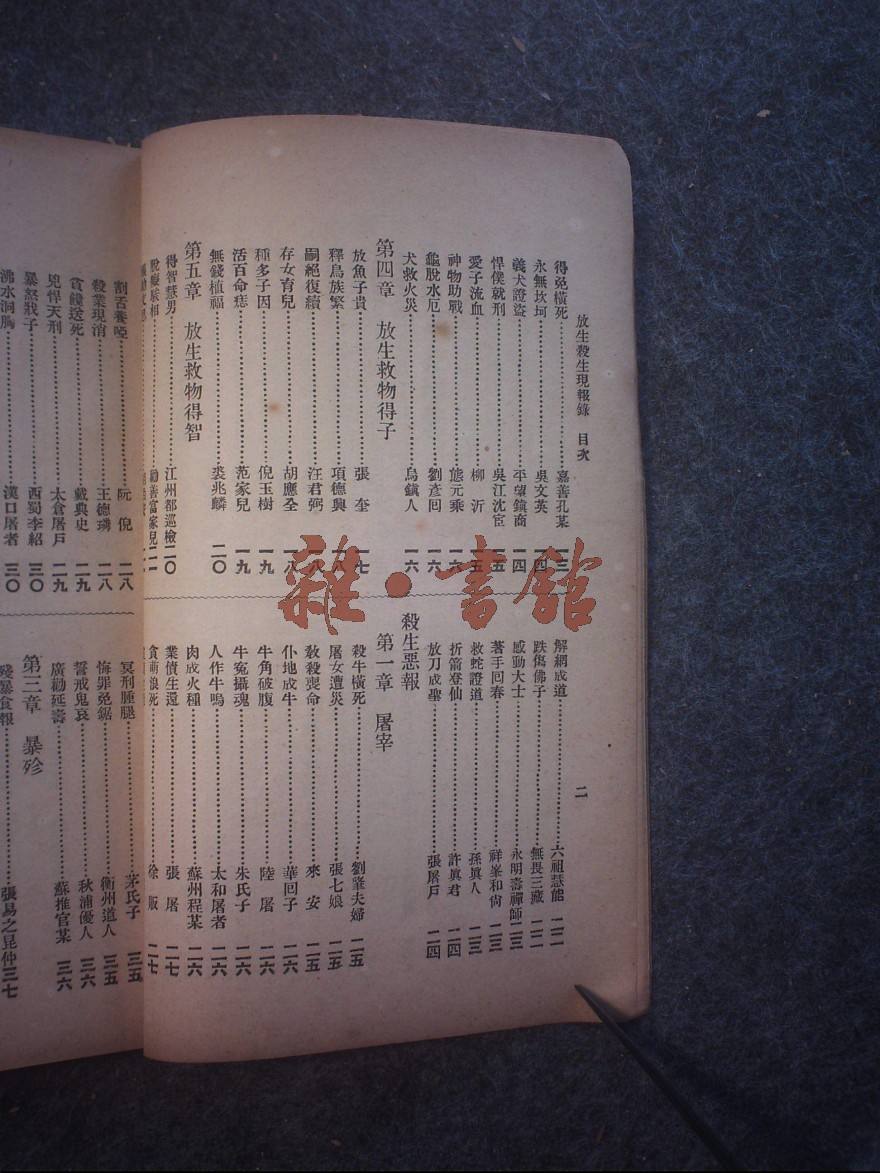 放生殺生現報錄　目次
二
得免橫死 嘉善孔某 一三
永無坎坷 吳文英 一四
義犬證盜 平望鎮商 一四
悍僕就刑 吳江沈宦 一五
愛子流血 柳沂 一五
神物助戰 熊元乘 一六
龜脫水厄 劉彥回 一六
犬救火災 烏鎮人 一六
第四章　放生救物得子
放魚子貴 張奎 一七
釋鳥族繁 項德興 一八
嗣絕復續 汪君弼 一八
存女育兒 胡應全 一八
種多子因 倪玉樹 一九
活百命痣 范家兒 一九
無錢植福 裘兆麟 二〇
第五章　放生救物得智
得智慧男 江州都巡檢 二〇
脫癡騃相 勸善富家兒 二一
解網成道 六祖慧能 二二
跌傷佛子 無畏三藏 二二
感動大士 永明壽禪師 二三
著手回春 祥峯和尙 二三
救蛇證道 孫眞人 二三
折箭登仙 許眞君 二四
放刀成聖 張屠戶 二四
殺生惡報
第一章　屠宰
殺牛橫死 劉肇夫婦 二五
屠女遭災 張七娘 二五
敎殺喪命 來安 二五
仆地成牛 華回子 二六
牛角破腹 陸屠 二六
牛冤攝魂 朱氏子 二六
人作牛鳴 太和屠者 二六
肉成火種 蘇州程某 二六
業債生還 張屠 二七
貪商狼死 徐販 二七
割舌養啞 阮倪 二八
殺業現消 王德璘 二八
貪饞送死 戴典史 二九
兇悍天刑 太倉屠戶 二九
暴怒戕子 西蜀李紹 三〇
沸水洞胸 漢口屠者 三〇
冥刑腫腿 茅氏子 三五
悔罪免鋸 衢州道人 三五
誓戒鬼哀 秋浦優人 三六
廣勸延壽 蘇推官某 三六
第三章　暴殄
殘暴食報 張易之昆仲 三七
雜·書館